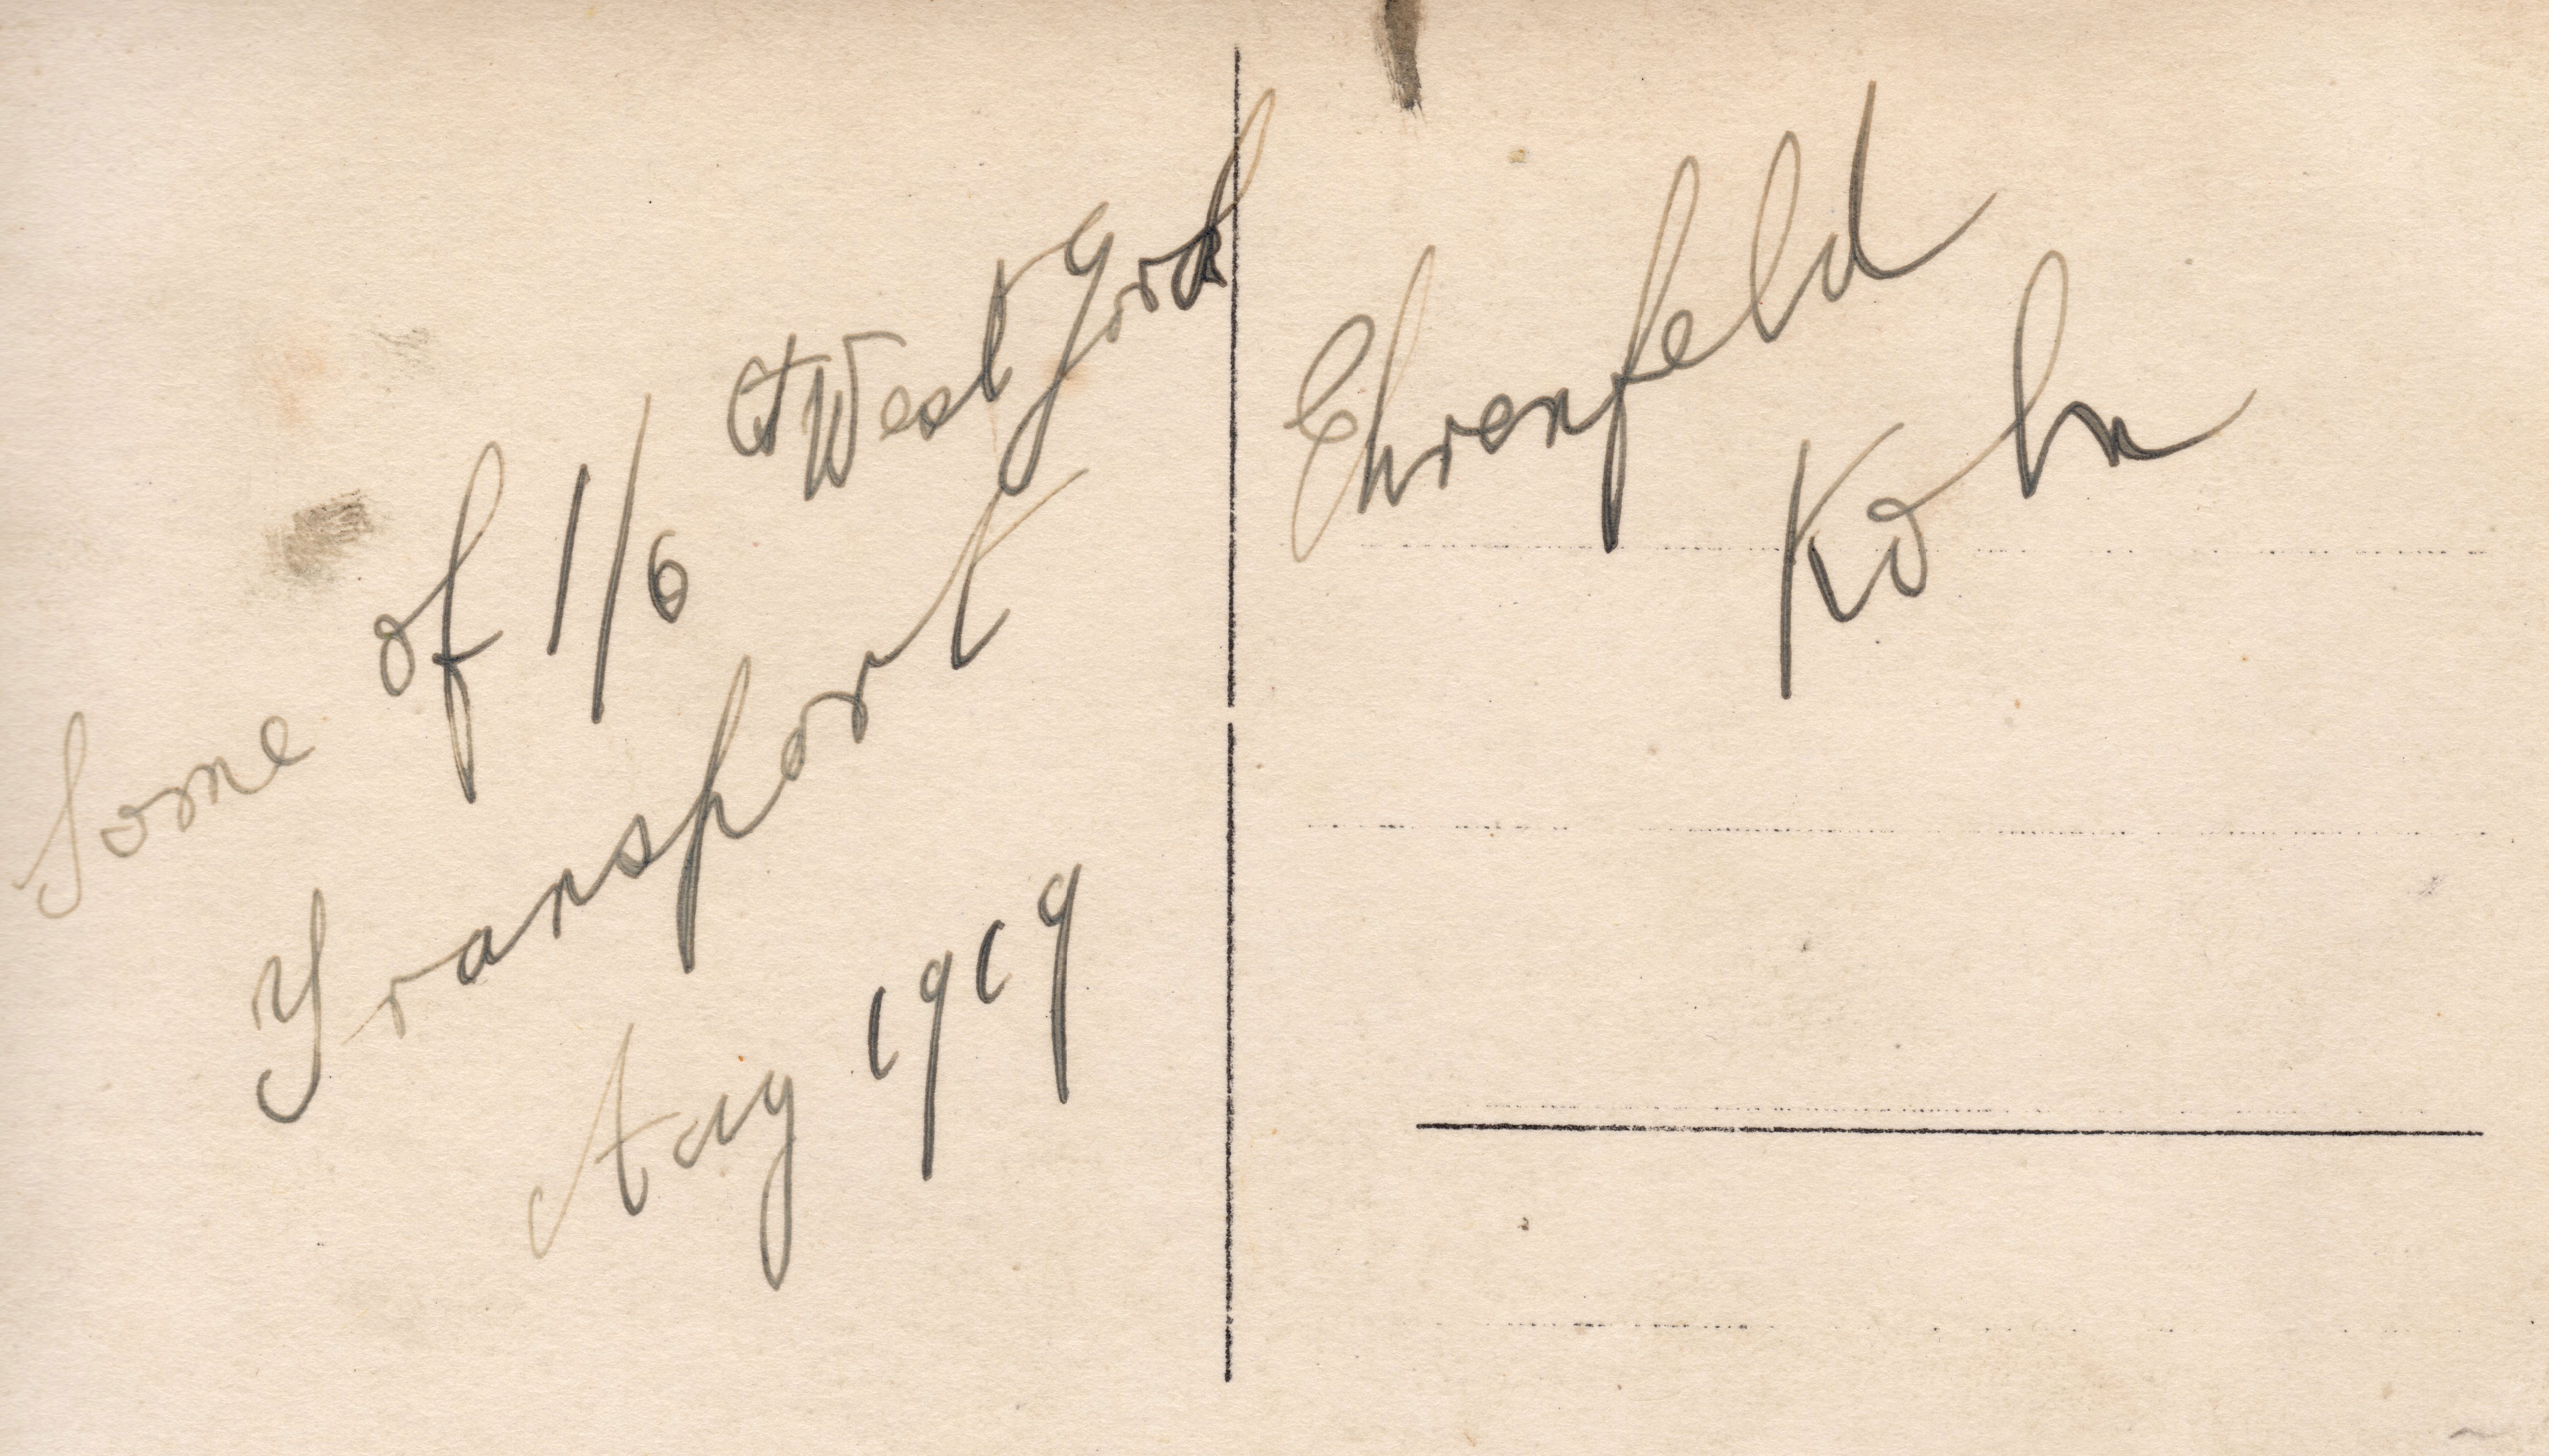 Some of 1/6 West York
Transport
Aug 1919
Ehrenfeld
Koln